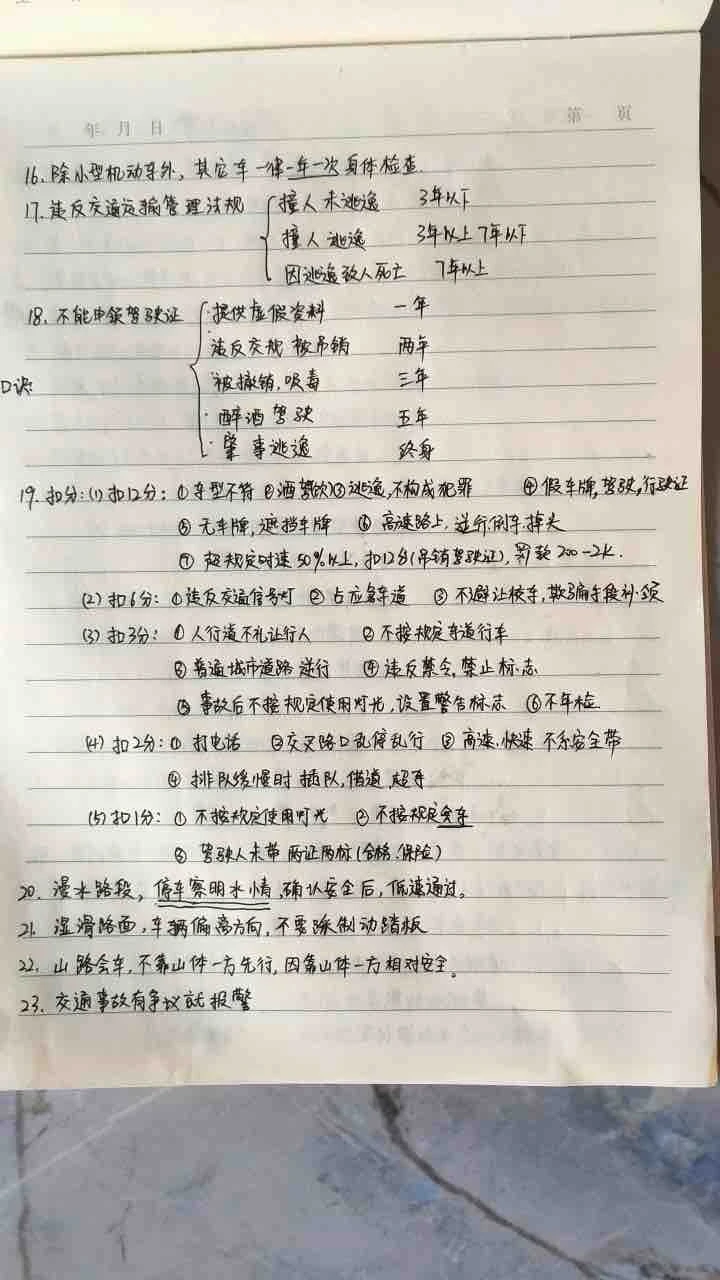 年 月 日 第 页
16. 除小型机动车外，其它车一律一年一次身体检查.
17. 违反交通运输管理法规 撞人未逃逸 3年以下
撞人逃逸 3年以上7年以下
因逃逸致人死亡 7年以上
18. 不能申领驾驶证 提供虚假资料 一年
违反交规 被吊销 两年
口诀: 被撤销, 吸毒 三年
醉酒驾驶 五年
肇事逃逸 终身
19. 扣分: (1) 扣12分: ① 车型不符 ② 酒驾(饮) ③ 逃逸, 不构成犯罪 ④ 假车牌, 驾驶, 行驶证
⑤ 无车牌, 遮挡车牌 ⑥ 高速路上, 逆行, 倒车, 掉头
⑦ 超规定时速50%以上, 扣12分(吊销驾驶证), 罚款200-2k.
(2) 扣6分: ① 违反交通信号灯 ② 占应急车道 ③ 不避让校车, 欺骗手段补领
(3) 扣3分: ① 人行道不礼让行人 ② 不按规定车道行车
③ 普通城市道路 逆行 ④ 违反禁令, 禁止标志
⑤ 事故后不按规定使用灯光, 设置警告标志 ⑥ 不年检
(4) 扣2分: ① 打电话 ② 交叉路口乱停乱行 ③ 高速, 快速 不系安全带
④ 排队缓慢时 插队, 借道, 超车
(5) 扣1分: ① 不按规定使用灯光 ② 不按规定会车
③ 驾驶人未带 两证两标(合格. 保险)
20. 漫水路段, 停车察明水情, 确认安全后, 低速通过。
21. 湿滑路面, 车辆偏离方向, 不要踩制动踏板
22. 山路会车, 不靠山体一方先行, 因靠山体一方相对安全。
23. 交通事故有争议就报警